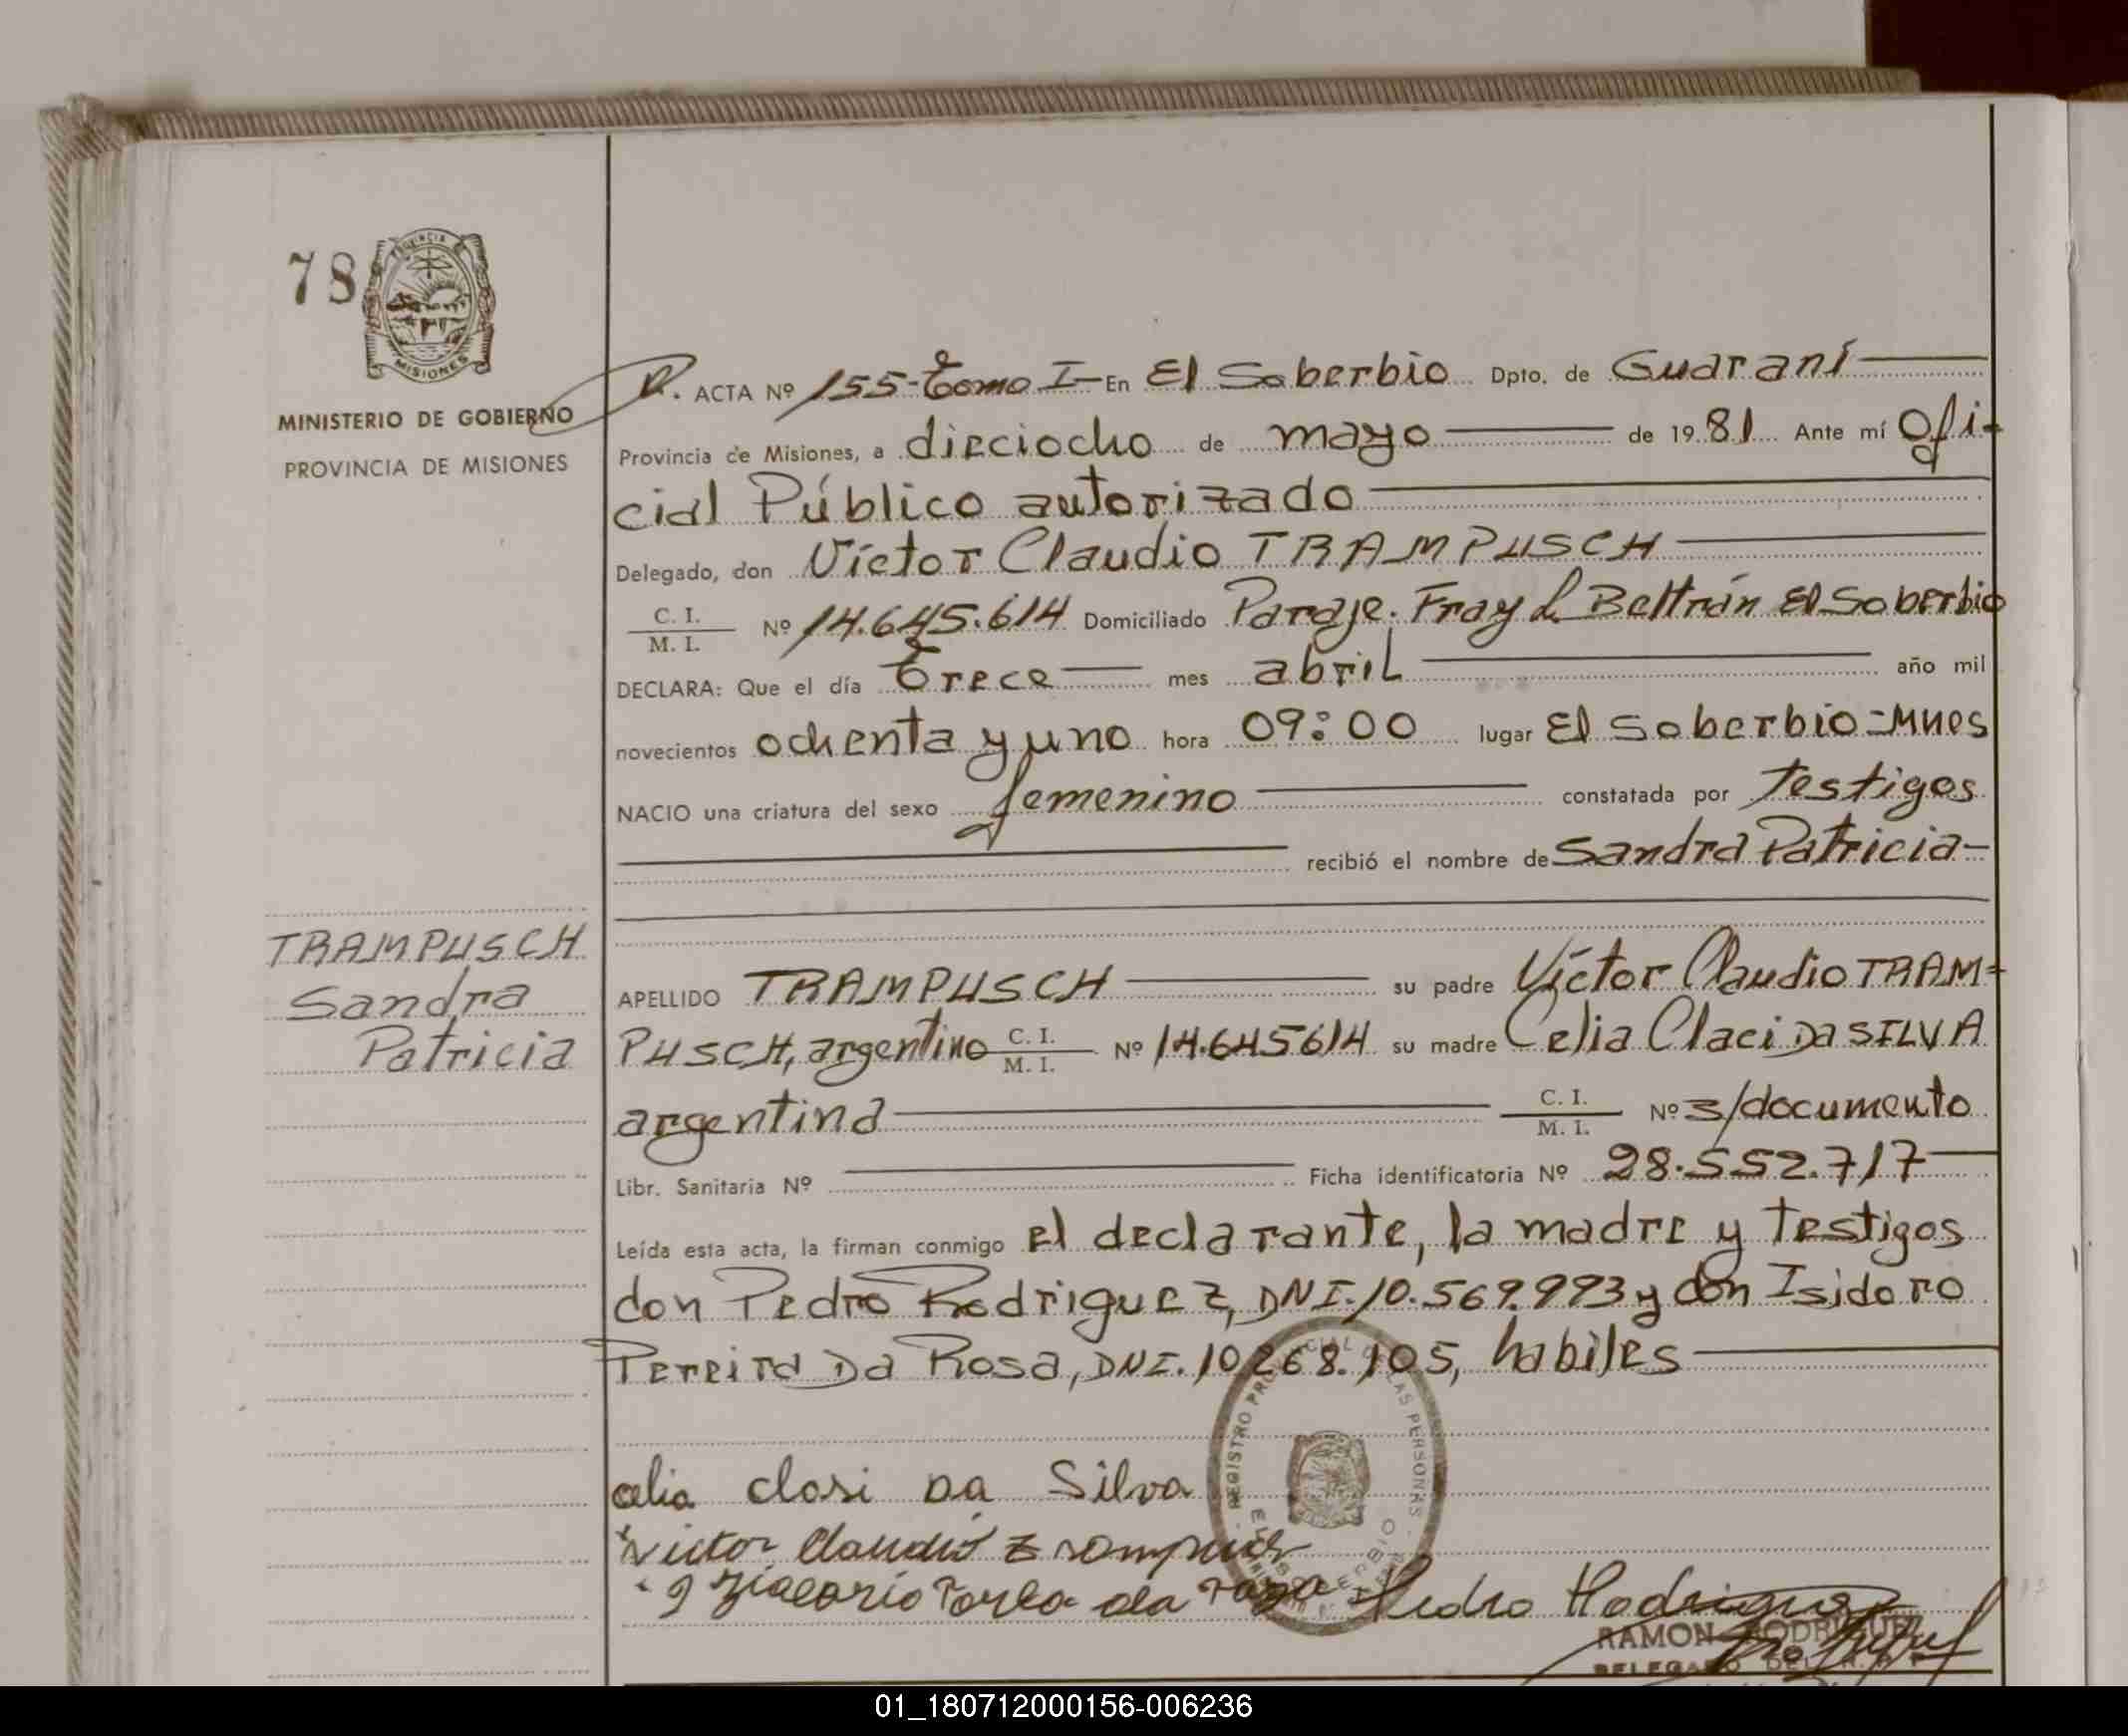 78
PROVINCIA
MISIONES
MINISTERIO DE GOBIERNO
PROVINCIA DE MISIONES
ACTA Nº 155-Tomo I- En El Soberbio Dpto. de Guaraní
Provincia de Misiones, a dieciocho de mayo de 1981 Ante mí Ofi-
cial Público autorizado
Delegado, don Víctor Claudio TRAMPUSCH
C. I.
M. I. Nº 14.645.614 Domiciliado Paraje. Fray L. Beltrán El Soberbio
DECLARA: Que el día Trece mes abril año mil
novecientos ochenta y uno hora 09:00 lugar El Soberbio-Mnes
NACIO una criatura del sexo femenino constatada por Testigos
recibió el nombre de Sandra Patricia-
TRAMPUSCH
Sandra
Patricia
APELLIDO TRAMPUSCH su padre Víctor Claudio TRAM-
PUSCH, argentino C. I. M. I. Nº 14.645614 su madre Celia Claci Da SILVA
argentina C. I. M. I. Nº s/documento
Libr. Sanitaria Nº Ficha identificatoria Nº 28.552.717
Leída esta acta, la firman conmigo el declarante, la madre y testigos
don Pedro Rodriguez, DNI.10.569.993 y don Isidoro
Pereira Da Rosa, DNI.10.268.105, habiles
REGISTRO PROVINCIAL DE LAS PERSONAS
EL SOBERBIO
celia closi da Silva
Victor Claudio
Pedro Rodriguez
RAMON RODRIGUEZ
DELEGADO DEL R.
01_180712000156-006236